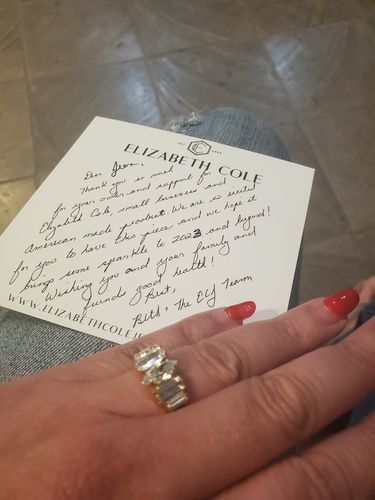 ELIZABETH COLE
Dear Jean,
Thank you so much
for your order and support for
Elizabeth Cole, small business and
American made product. We are so excited
for you to have this piece and we hope it
brings some sparkle to 2023 and beyond!
Wishing you and your family and
friends good health!
Best,
Beth + The ECJ Team
WWW.ELIZABETHCOLEJE